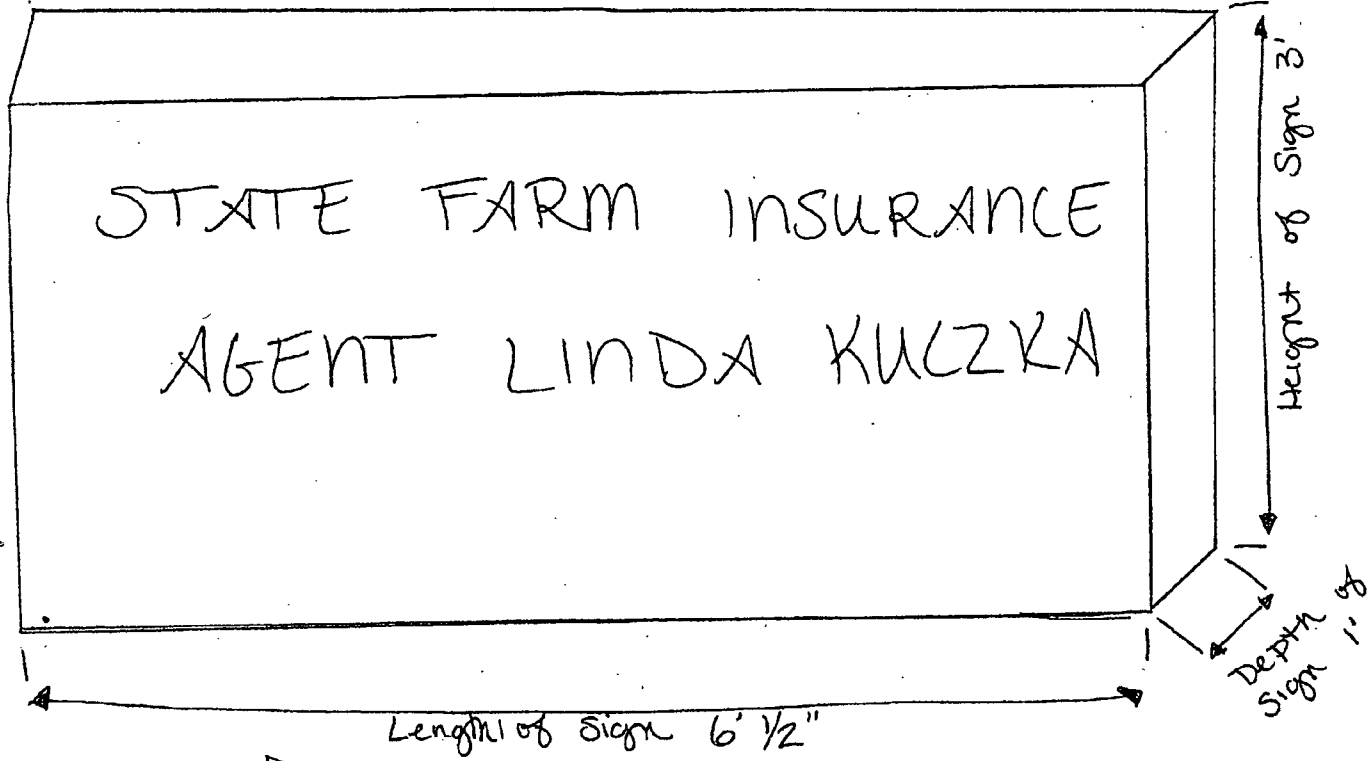 STATE FARM INSURANCE
AGENT LINDA KUCZKA
Height of Sign 3'
Depth of
Sign 1'
Length of Sign 6' 1/2"